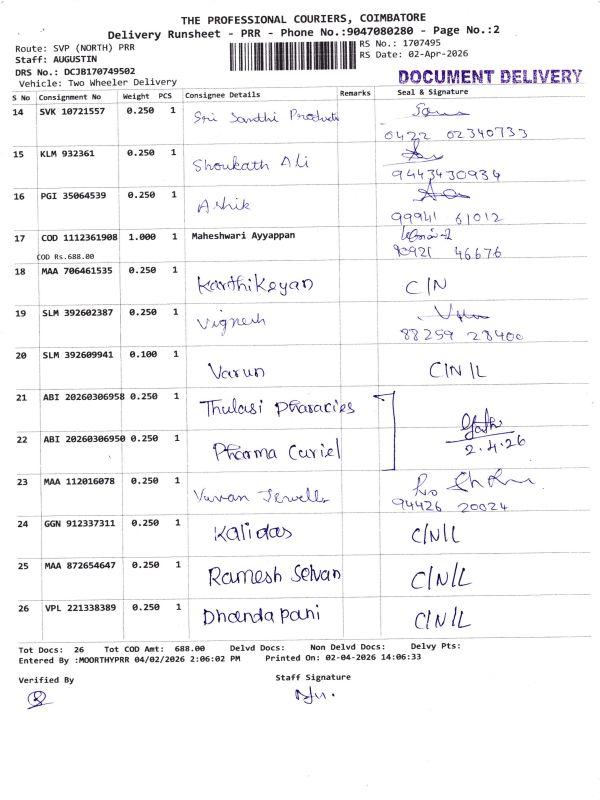 THE PROFESSIONAL COURIERS, COIMBATORE
Delivery Runsheet - PRR - Phone No.:9047080280 - Page No.:2
Route: SVP (NORTH) PRR
RS No.: 1707495
Staff: AUGUSTIN
RS Date: 02-Apr-2026
DRS No.: DCJB170749502
DOCUMENT DELIVERY
Vehicle: Two Wheeler Delivery
S No Consignment No Weight PCS Consignee Details Remarks Seal & Signature
14 SVK 10721557 0.250 1 Sri Sandhi Products
0422 02340733
15 KLM 932361 0.250 1 Shoukath Ali
9443430934
16 PGI 35064539 0.250 1 Ashik
99941 61012
17 COD 1112361908 1.000 1 Maheshwari Ayyappan
COD Rs.688.00 46676
18 MAA 706461535 0.250 1 Karthikeyan C/N
19 SLM 392602387 0.250 1 Vignesh
88259 28400
20 SLM 392609941 0.100 1 Varun C/N/L
21 ABI 20260306958 0.250 1 Thulasi Pharacies
22 ABI 20260306950 0.250 1 Pharma Curiel 2.4.26
23 MAA 112016078 0.250 1 Vuvan Jewells
94426 20024
24 GGN 912337311 0.250 1 Kalidas C/N/L
25 MAA 872654647 0.250 1 Ramesh Selvan C/N/L
26 VPL 221338389 0.250 1 Dhandapani C/N/L
Tot Docs: 26 Tot COD Amt: 688.00 Delvd Docs: Non Delvd Docs: Delvy Pts:
Entered By :MOORTHYPRR 04/02/2026 2:06:02 PM Printed On: 02-04-2026 14:06:33
Verified By Staff Signature